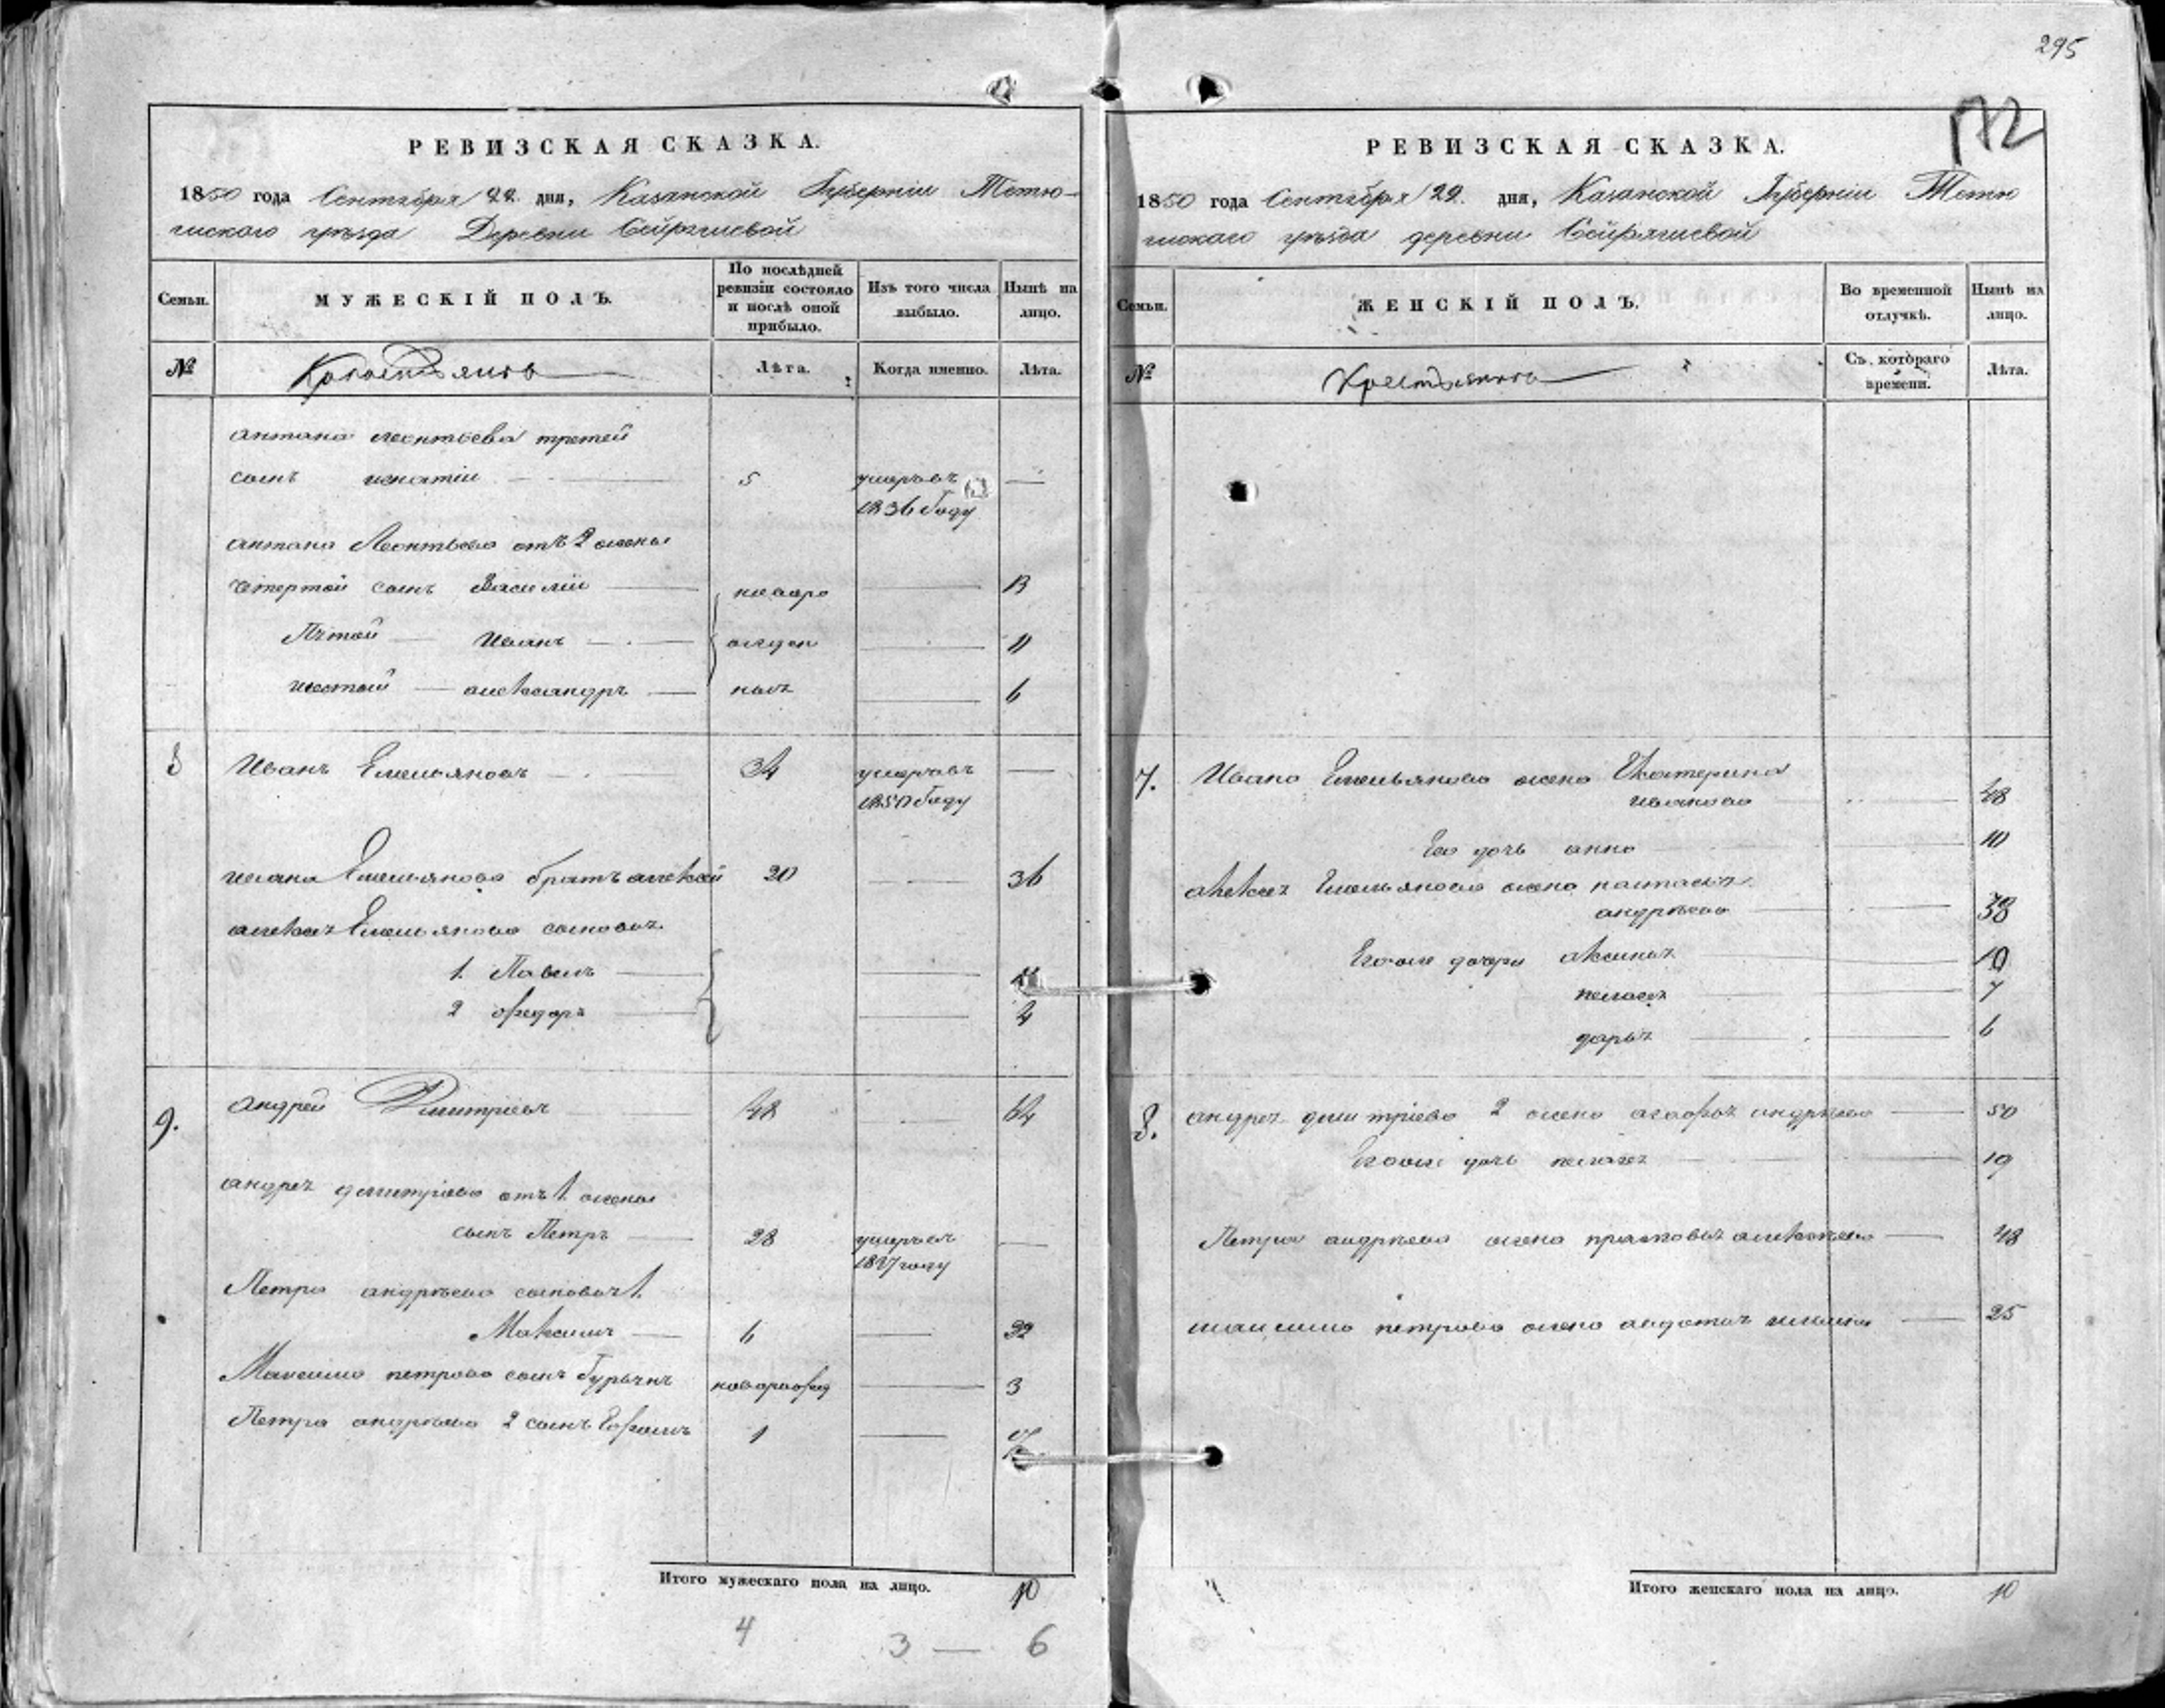 295
172
РЕВИЗСКАЯ СКАЗКА.
1850 года Сентября 22 дня, Казанской Губерніи Тетю-
шскаго уѣзда Деревни
Семьи.
МУЖЕСКІЙ ПОЛЪ.
По послѣдней ревизіи состояло и послѣ оной прибыло.
Изъ того числа выбыло.
Нынѣ на лицо.
№
Крестьянъ
Лѣта.
Когда именно.
Лѣта.
антана леонтьева третей
сынъ игнатіи 5 умеръ въ —
1836 году
антана Леонтьева отъ 2 жены
четвертой сынъ Василіи — новоро — 13
Пятой — Иванъ — жден — 11
шестой — александръ — ныя — 6
8 Иванъ Емельяновъ — 34 умеръ въ —
1850 году
ивана Емельянова братъ алексей 20 — 36
алексея Емельянова сыновья
1. Павелъ — —
2 федоръ — —
9. андрей Дмитріевъ 48 — 64
андрея дмитріева отъ 1. жены
сынъ Петръ — 28 умеръ въ —
1837 году
Петра андрѣева сыновья 1.
Максимъ — 6 — 22
Максима петрова сынъ — 3
Петра андрѣева 2 сынъ Ефимъ 1 —
Итого мужескаго пола на лицо. 10
4 3 — 6
РЕВИЗСКАЯ СКАЗКА.
1850 года Сентября 22. дня, Казанской Губерніи Тетю
шскаго уѣзда деревни
Семьи.
ЖЕНСКІЙ ПОЛЪ.
Во временной отлучкѣ.
Нынѣ на лицо.
№
Крестьянъ
Съ котораго времени.
Лѣта.
7. Ивана Емельянова жена Екатерина
иванова — 48
Его дочь анна — 10
алексея Емельянова жена настасья
андрѣева — 38
Егоже дочери аксинья — 10
пелагея — 7
дарья — 6
8. андрея дмитріева 2 жена агафья андрѣева — 50
Егоже дочь пелагея — 19
Петра андрѣева жена прасковья алексѣева — 48
максима петрова жена авдотья — 25
Итого женскаго пола на лицо. 10